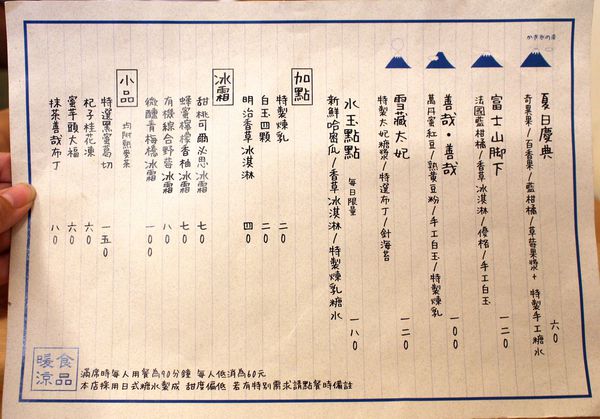 かき氷の季
夏日慶典
奇異果/百香果/藍柑橘/草莓果漿+特製手工糖水 六0
富士山腳下
法國藍柑橘/香草冰淇淋/優格/手工白玉 一二0
善哉·善哉
萬丹蜜紅豆/熟黃豆粉/手工白玉/特製煉乳 一00
雪藏太妃
特製太妃糖漿/特選布丁/針海苔 一二0
水玉點點 每日限量
新鮮哈密瓜/香草冰淇淋/特製煉乳糖水 一八0
加點
特製煉乳 二0
白玉四顆 二0
明治香草冰淇淋 四0
冰霜
甜桃可爾必思冰霜 七0
蜂蜜檸檬香柚冰霜 七0
有機綜合野莓冰霜 八0
微醺青梅橋冰霜 一00
小品
均附熱麥茶
特選黑蜜葛切 一五0
杞子桂花凍 六0
蜜芋頭大福 六0
抹茶善哉布丁 八0
滿席時每人用餐為90分鐘 每人低消為60元
本店採用日式糖水製成 甜度偏低 若有特別需求請點餐時備註
食品
暖涼